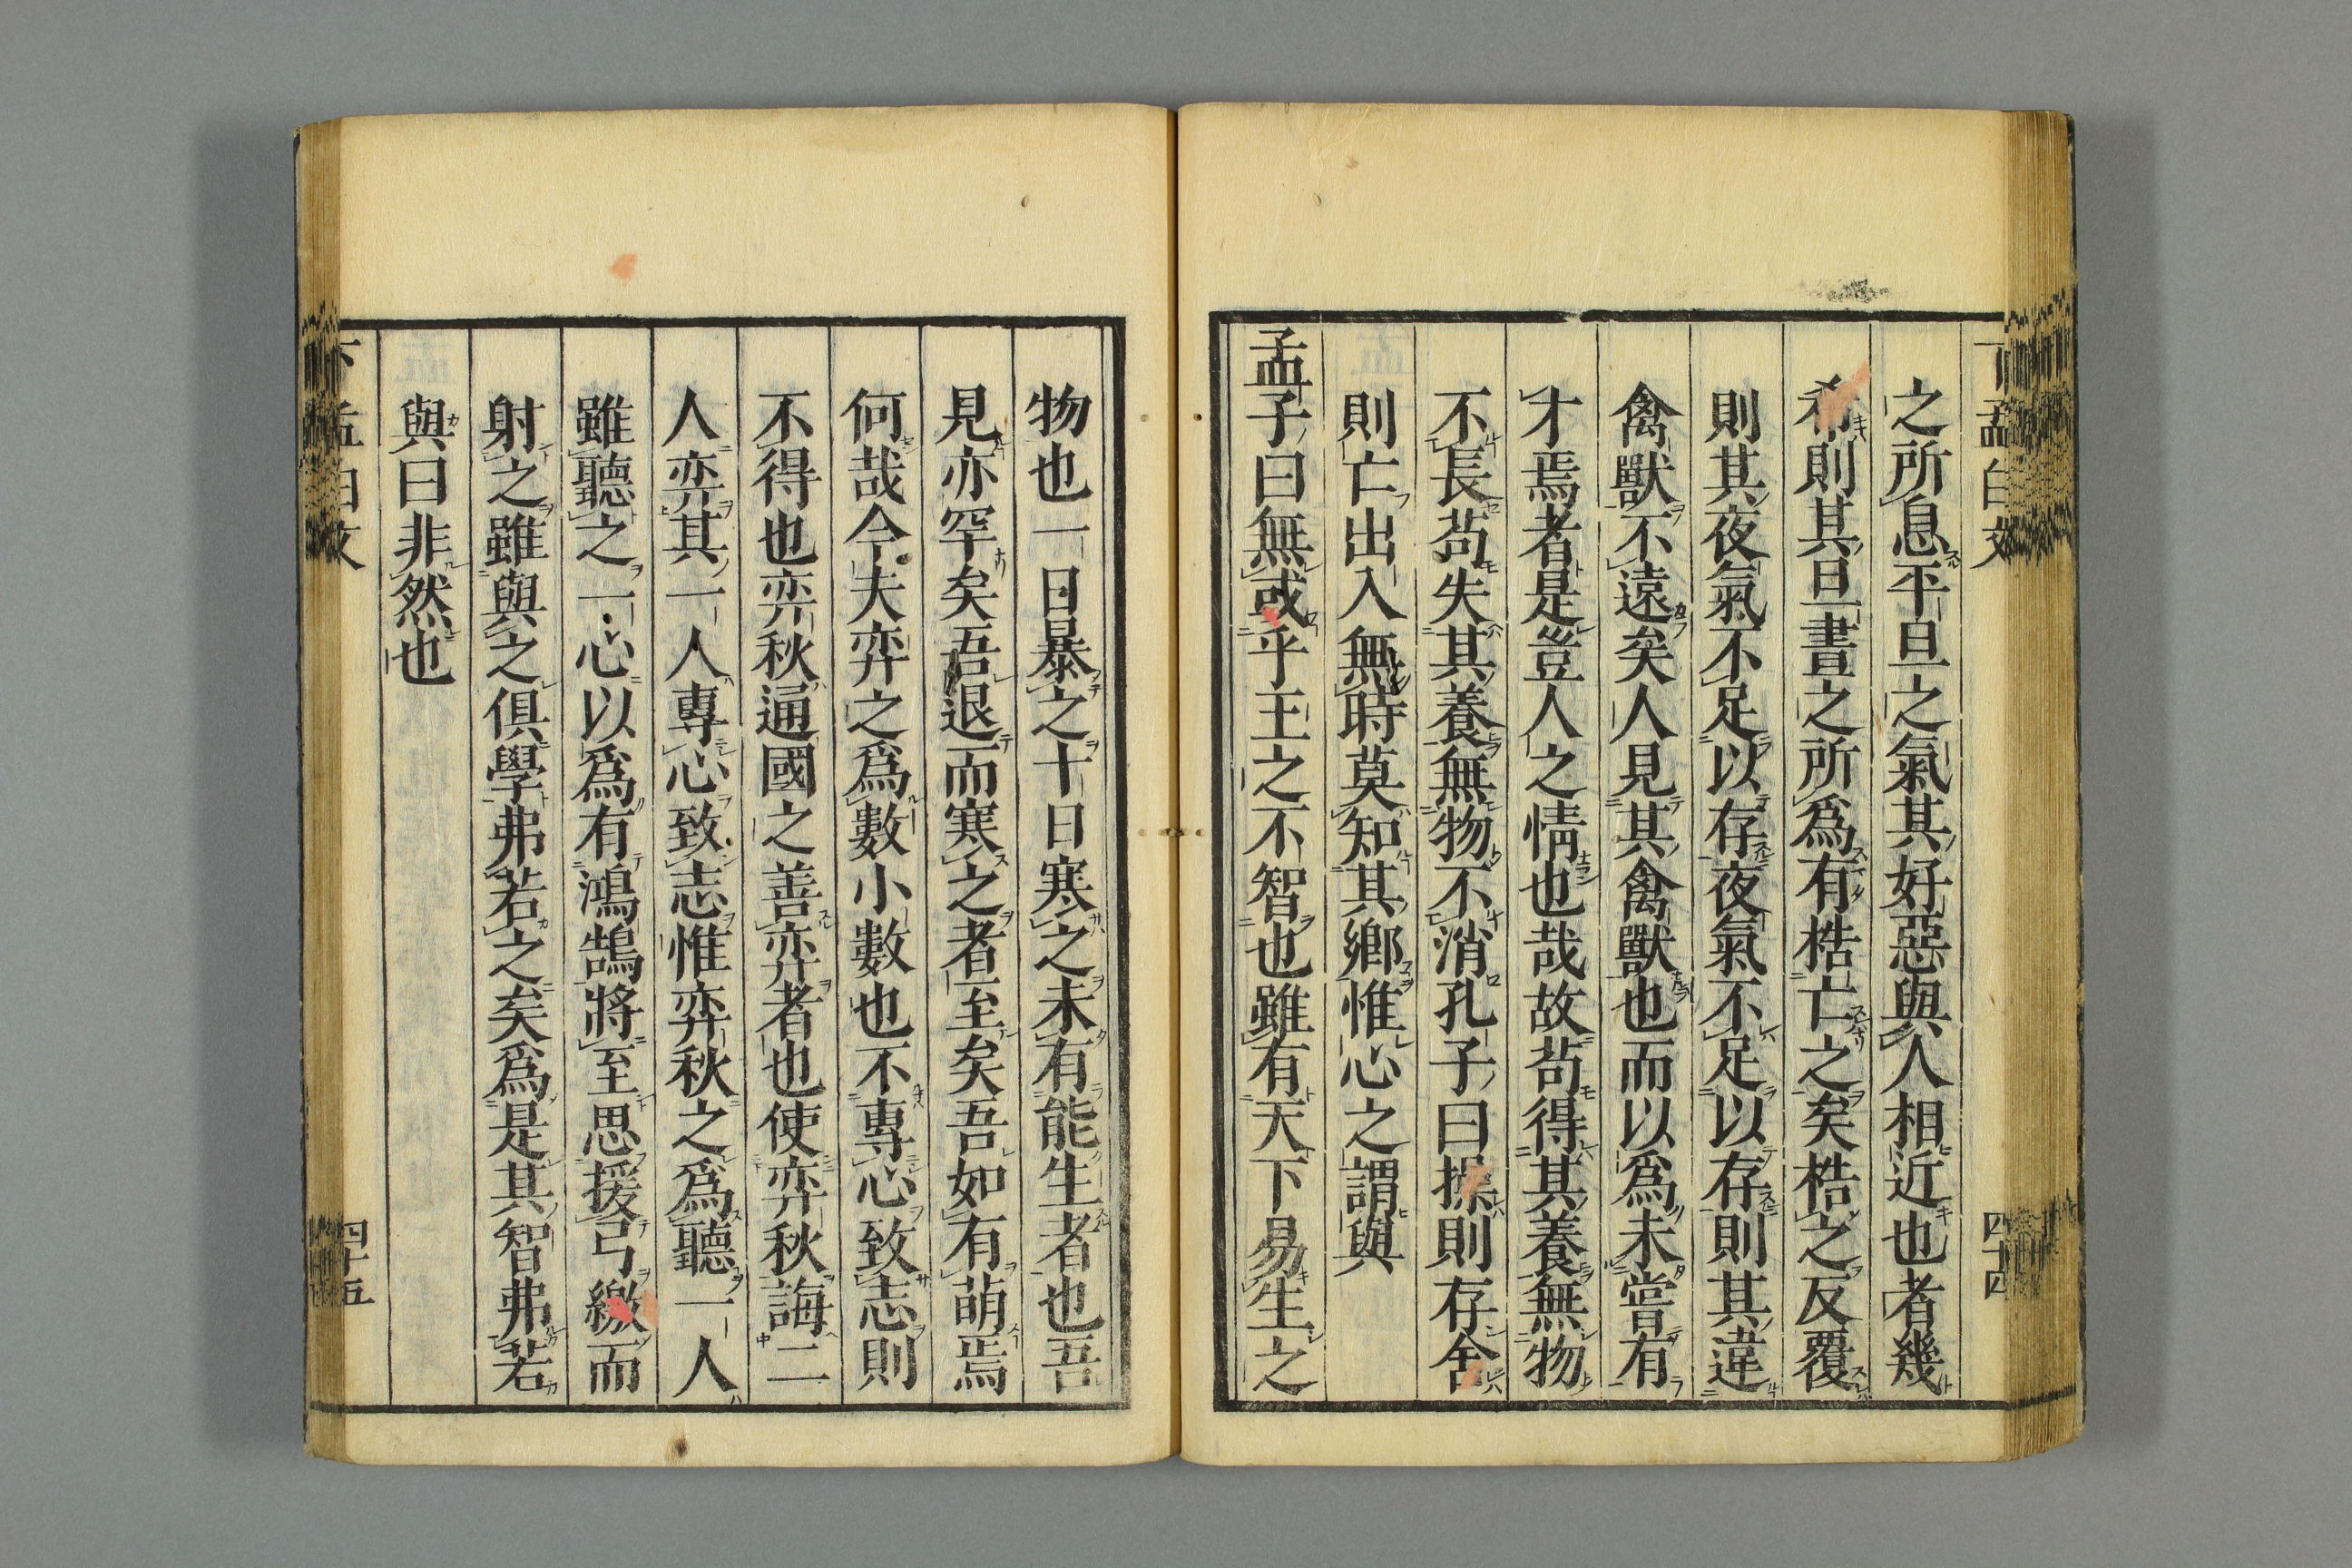 下孟白文
四十四
之所息平旦之氣其好惡與人相近也者幾
希則其旦晝之所爲有梏亡之矣梏之反覆
則其夜氣不足以存夜氣不足以存則其違
禽獸不遠矣人見其禽獸也而以爲未嘗有
才焉者是豈人之情也哉故苟得其養無物
不長苟失其養無物不消孔子曰操則存舍
則亡出入無時莫知其鄉惟心之謂與
孟子曰無或乎王之不智也雖有天下易生之
物也一日暴之十日寒之未有能生者也吾
見亦罕矣吾退而寒之者至矣吾如有萌焉
何哉今夫弈之爲數小數也不專心致志則
不得也弈秋通國之善弈者也使弈秋誨二
人弈其一人專心致志惟弈秋之爲聽一人
雖聽之一心以爲有鴻鵠將至思援弓繳而
射之雖與之俱學弗若之矣爲是其智弗若
與曰非然也
下孟白文
四十五